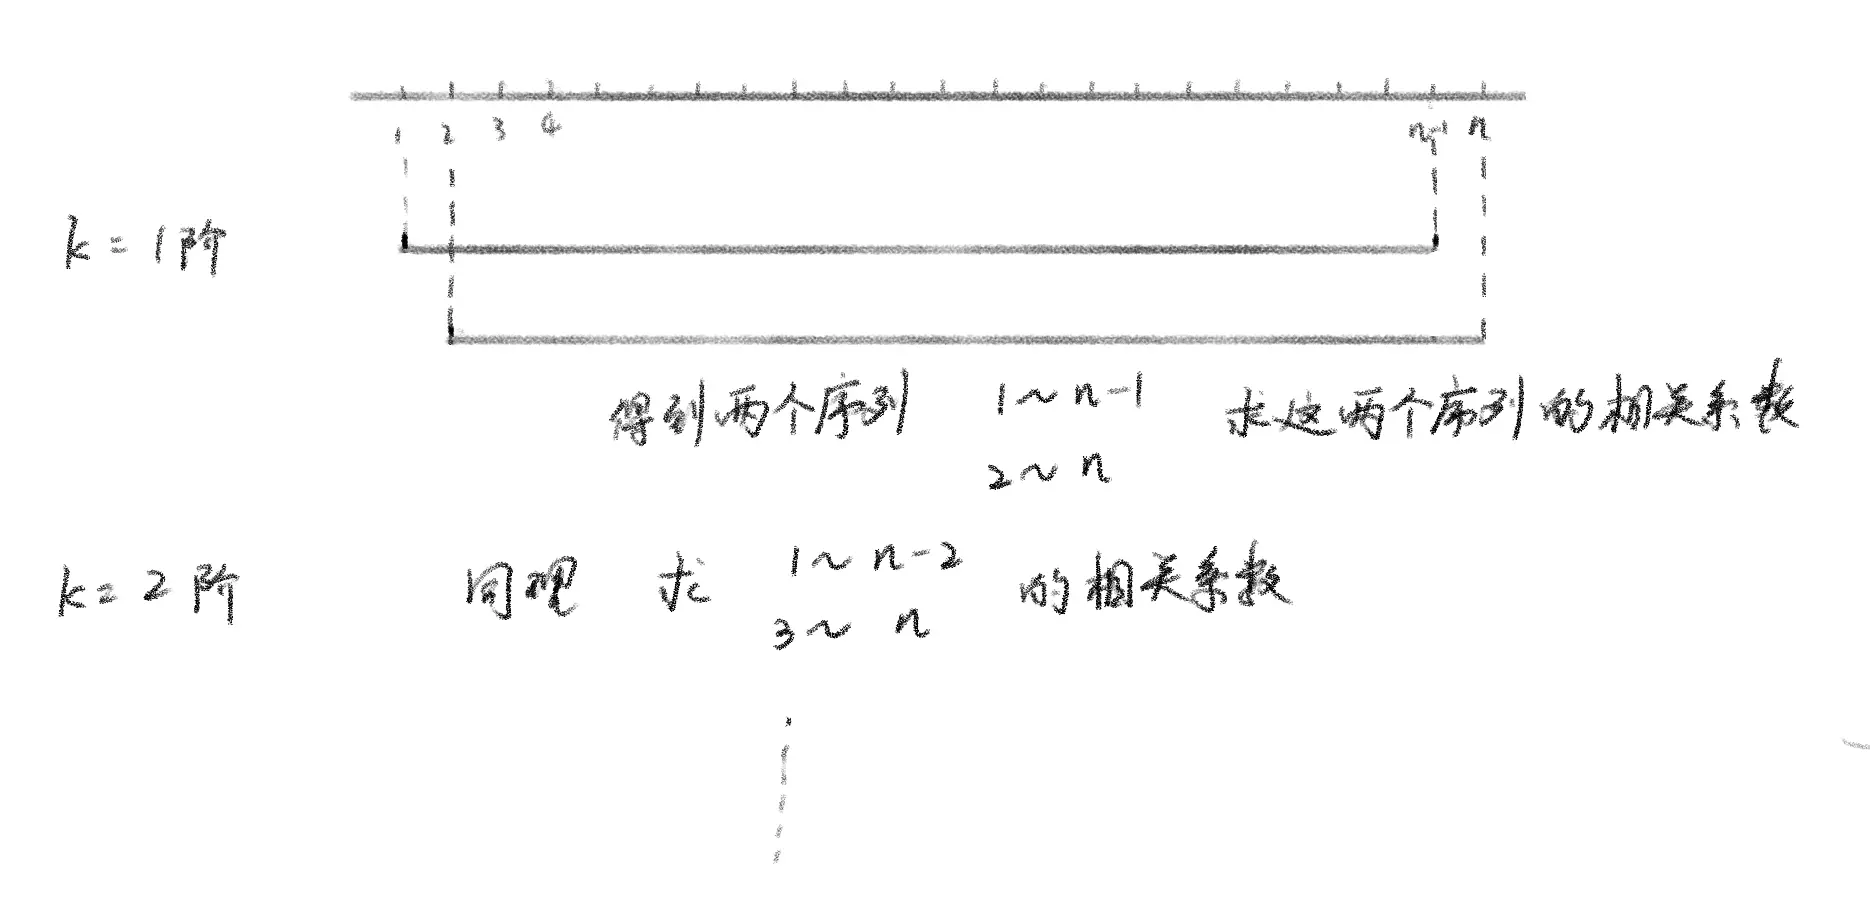 1 2 3 4 n-1 n
k = 1阶
得到两个序列 1～n-1 求这两个序列的相关系数
2～n
k = 2阶 同理 求 1～n-2 的相关系数
3～n